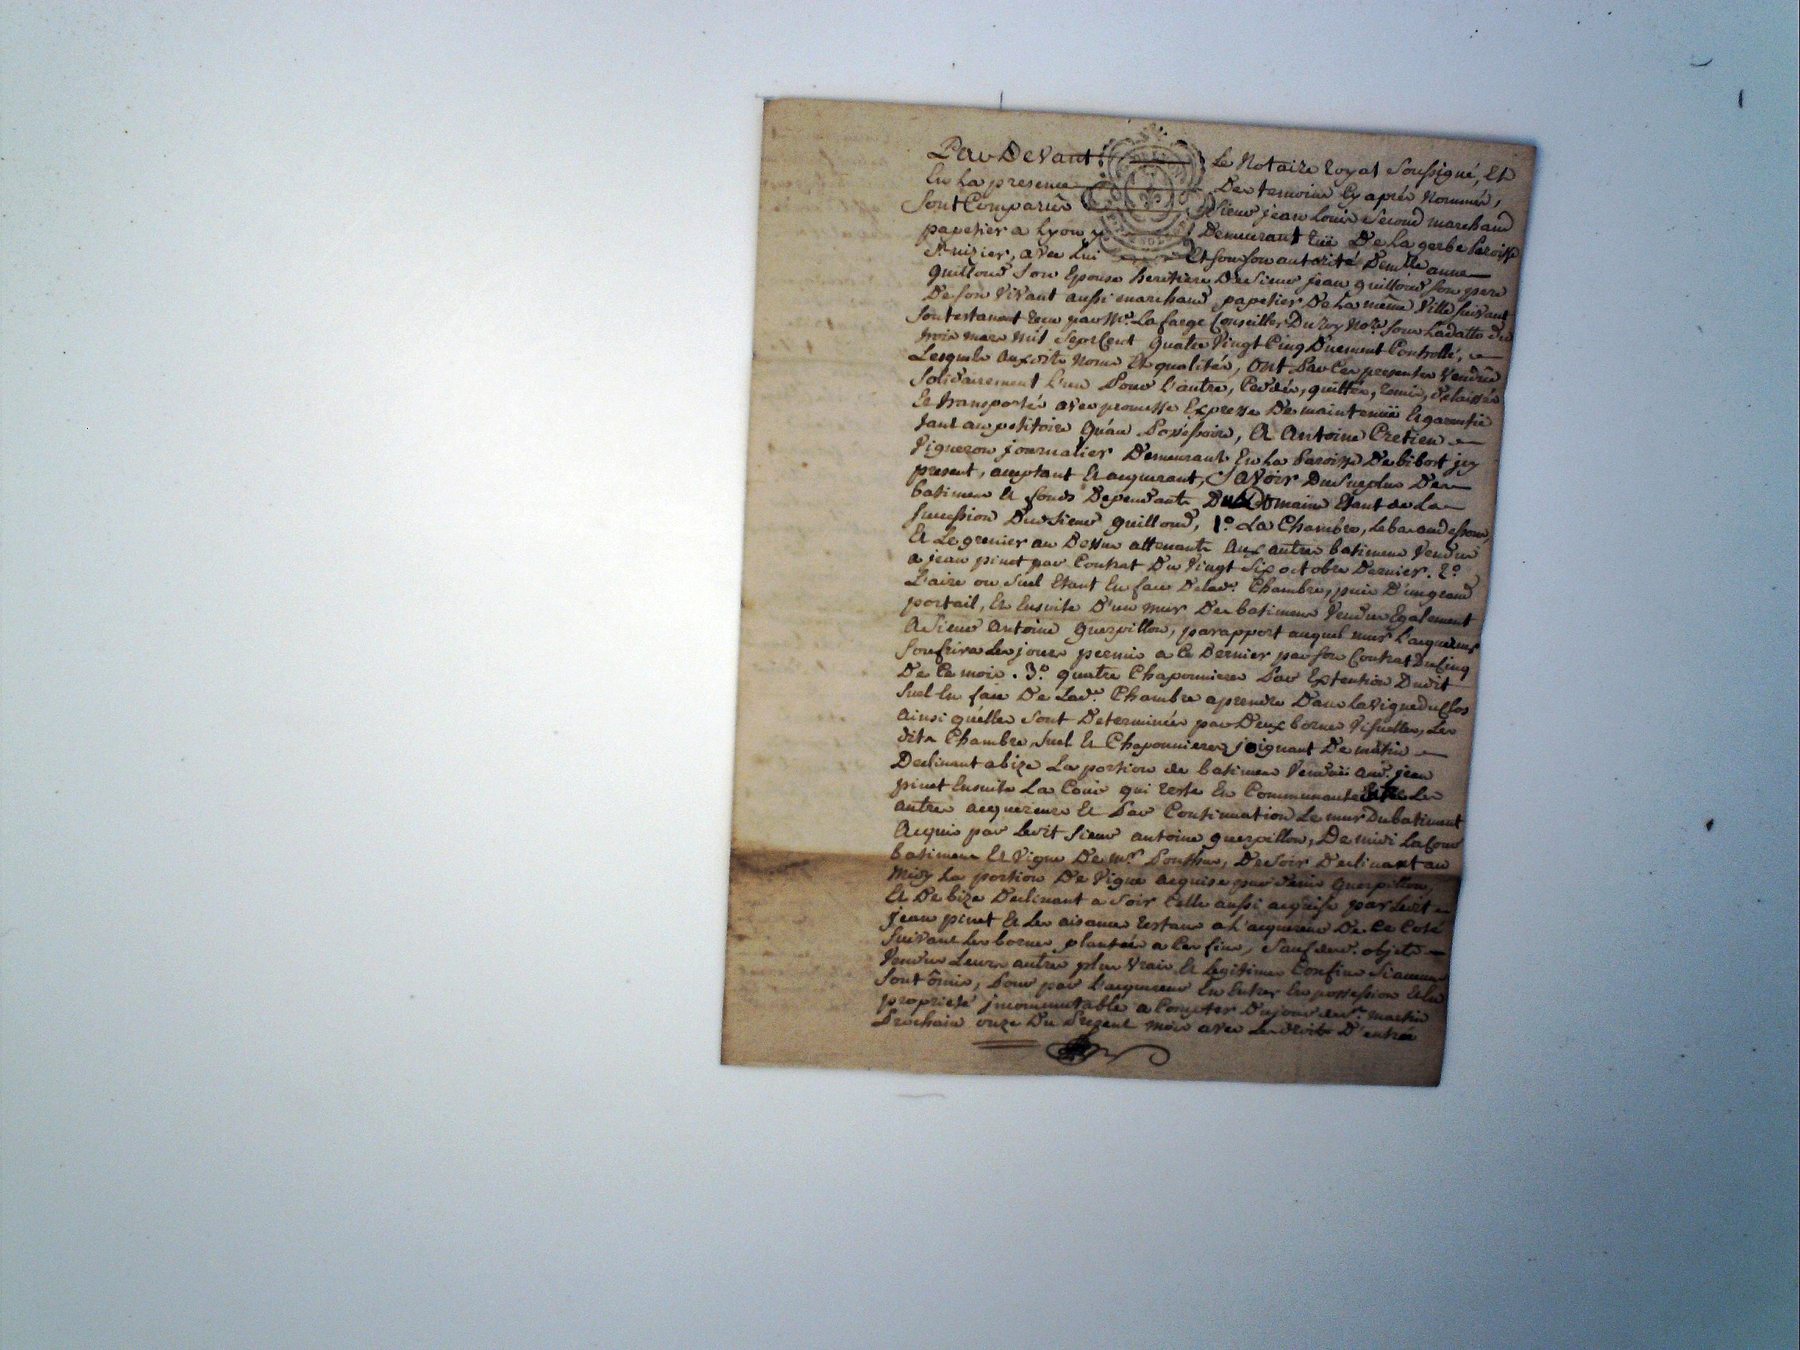 Par Devant le Notaire royal soussigné, Et
En La presence Des temoins Cy après Nommés,
sont Comparus Sieur jean Louis Second marchand
papetier a Lyon y Demeurant rüe De la gerbe Paroisse
St. nizier, avec Lui Et sous son autorité Demlle anne
guilloud Son Epouse heritiere De sieur jean guilloud son pere
De son Vivant aussi marchand papetier De La même Ville suivant
son testament recu par Me. Lafarge Conseiller Du roy Nore. sous La datte du
trois mars mil sept Cent quatre Vingt Cinq Duement Controllé,
Lesquels auxdits Noms Et qualités, ont Par Ces presentes Vendus
solidairement L'un Pour L'autre, Cedés, quittés, remis, délaissés
Et transportés avec promesse Expresse De maintenüe Et garentie
tant au petitoire qu'au Possessoire, A Antoine Cretien
Vigneron journalier Demeurant En La Paroisse De bibost icy
present, acceptant Et acquerant, Savoir Du surplus Des
batimens Et fonds Dependants Du Domaine Etant de La
succession Dud. sieur guilloud, 1o. La Chambre, le bas audessous,
Et Le grenier au Dessus attenants aux autres batimens Vendus
a jean pinet par Contrat Du Vingt six octobre Dernier. 2o.
L'aire ou suel Etant En face De lad. Chambre, puis D'un grand
portail, Et Ensuite D'un mur Des batimens Vendus Egalement
A sieur antoine guerpillon, par rapport auquel mur L'acquereur
souffrira Les jours permis a Ce Dernier par son Contrat Du Cinq
De Ce mois. 3o. quatre Chaponnieres Par Extention Dudit
suel En face De Lade. Chambre a prendre Dans la Vigne du Clos
Ainsi qu'elles sont Determinées par Deux bornes Visuelles, Les
dits Chambre, suel Et Chaponnieres joignant De matin
Declinant a bize La portion de batimens Vendüe aud. jean
pinet Ensuite La Cour qui reste En Communauté Entre Les
autres acquereurs Et Par Continuation Le mur Du batiment
Acquis par Ledit sieur antoine guerpillon, De midi La Cour
batimens Et Vigne De Mr. De soir Declinant au
midy La portion De Vigne acquise par Denis Guerpillon,
Et De bize Declinant a soir Celle aussi acquise par Ledit
jean pinet Et Les aisances restans a L'acquereur De Ce Coté
suivant Les bornes plantées a Ces fins, sauf desd. objets
Vendus Leurs autres plus Vrais Et Legitimes Confins si aucuns
sont ômis, Pour par L'acquereur En Entrer En possession Et La
proprieté incommutable a Compter Du jour de st. martin
Prochain onze Du Present mois avec Les droits D'entrée